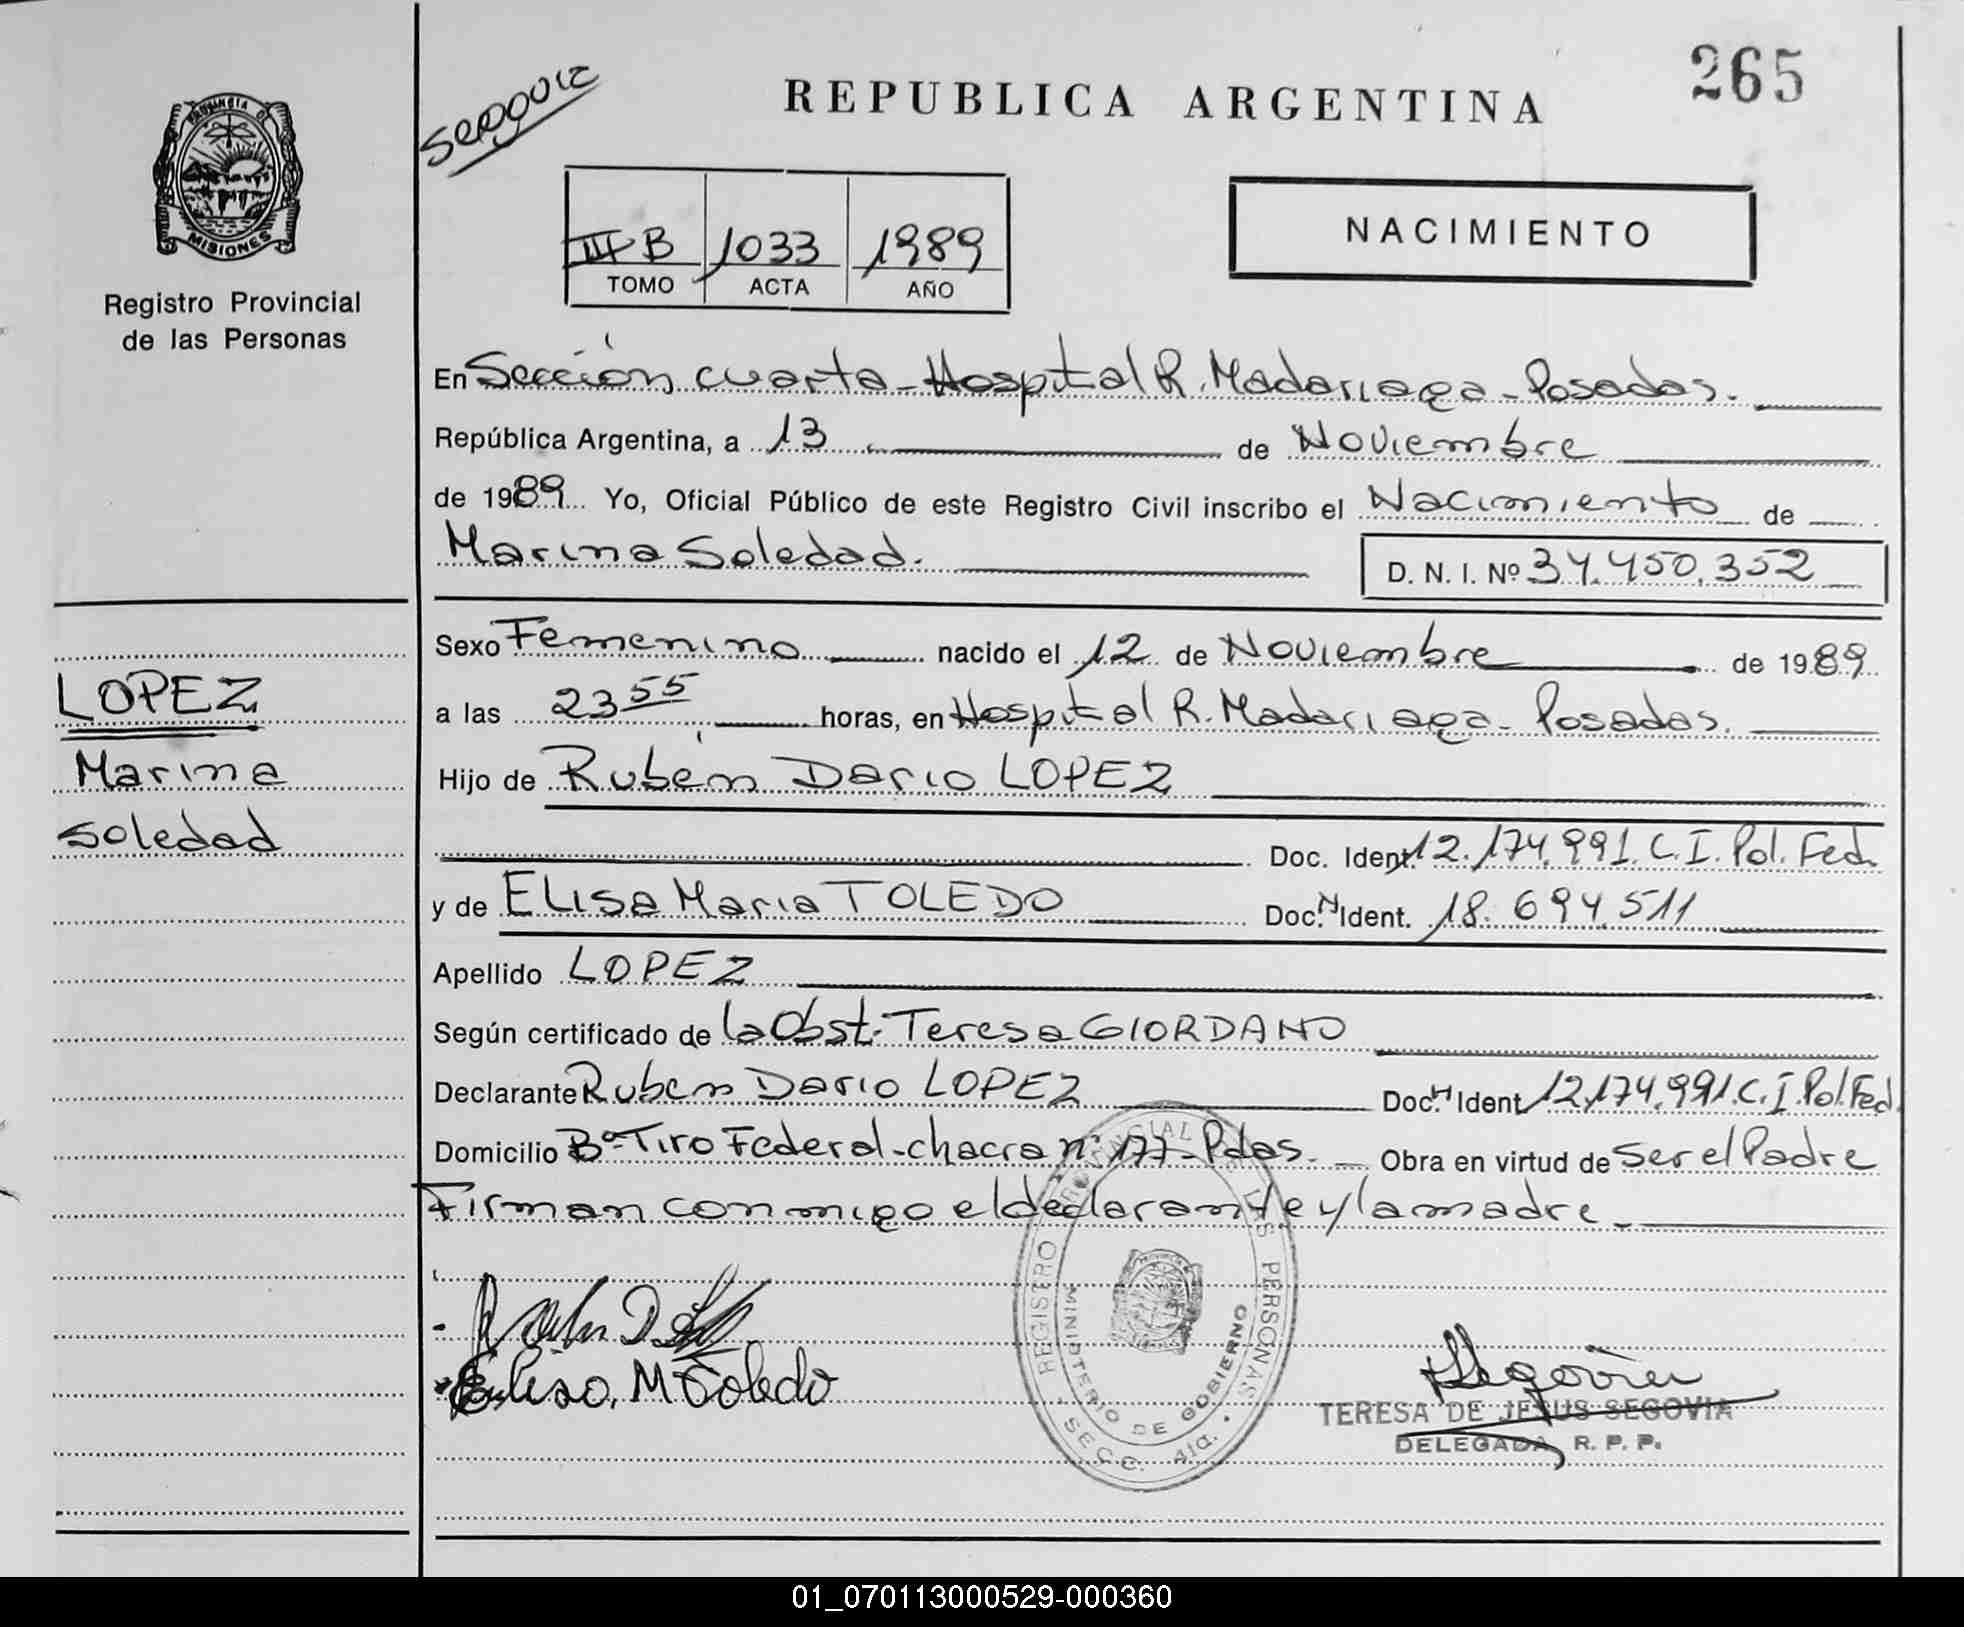 265
REPUBLICA ARGENTINA
PROVINCIA DE
MISIONES
NACIMIENTO
III B 1033 1989
TOMO ACTA AÑO
Registro Provincial
de las Personas
En Sección cuarta - Hospital R. Madariaga - Posadas.
República Argentina, a 13 de Noviembre
de 1989 Yo, Oficial Público de este Registro Civil inscribo el Nacimiento de
Marina Soledad.
D. N. I. Nº 34.450.352
LOPEZ
Marina
Soledad
Sexo Femenino nacido el 12 de Noviembre de 1989
a las 23 55 horas, en Hospital R. Madariaga - Posadas.
Hijo de Rubén Dario LOPEZ
Doc. Ident. 12.174.991. C. I. Pol. Fed.
y de ELisa Maria TOLEDO Doc. N Ident. 18.694.511
Apellido LOPEZ
Según certificado de la Obst. Teresa GIORDANO
Declarante Ruben Dario LOPEZ Doc. N Ident 12.174.991. C. I. Pol. Fed.
Domicilio Bº Tiro Federal - chacra nº 177 - Pdas. Obra en virtud de Ser el Padre
Firman conmigo el declarante y la madre.
Elisa. M Toledo
REGISTRO PROVINCIAL DE LAS PERSONAS
MINISTERIO DE GOBIERNO
SECC. 4ta.
Segovia
TERESA DE JESUS SEGOVIA
DELEGADA R. P. P.
01_070113000529-000360